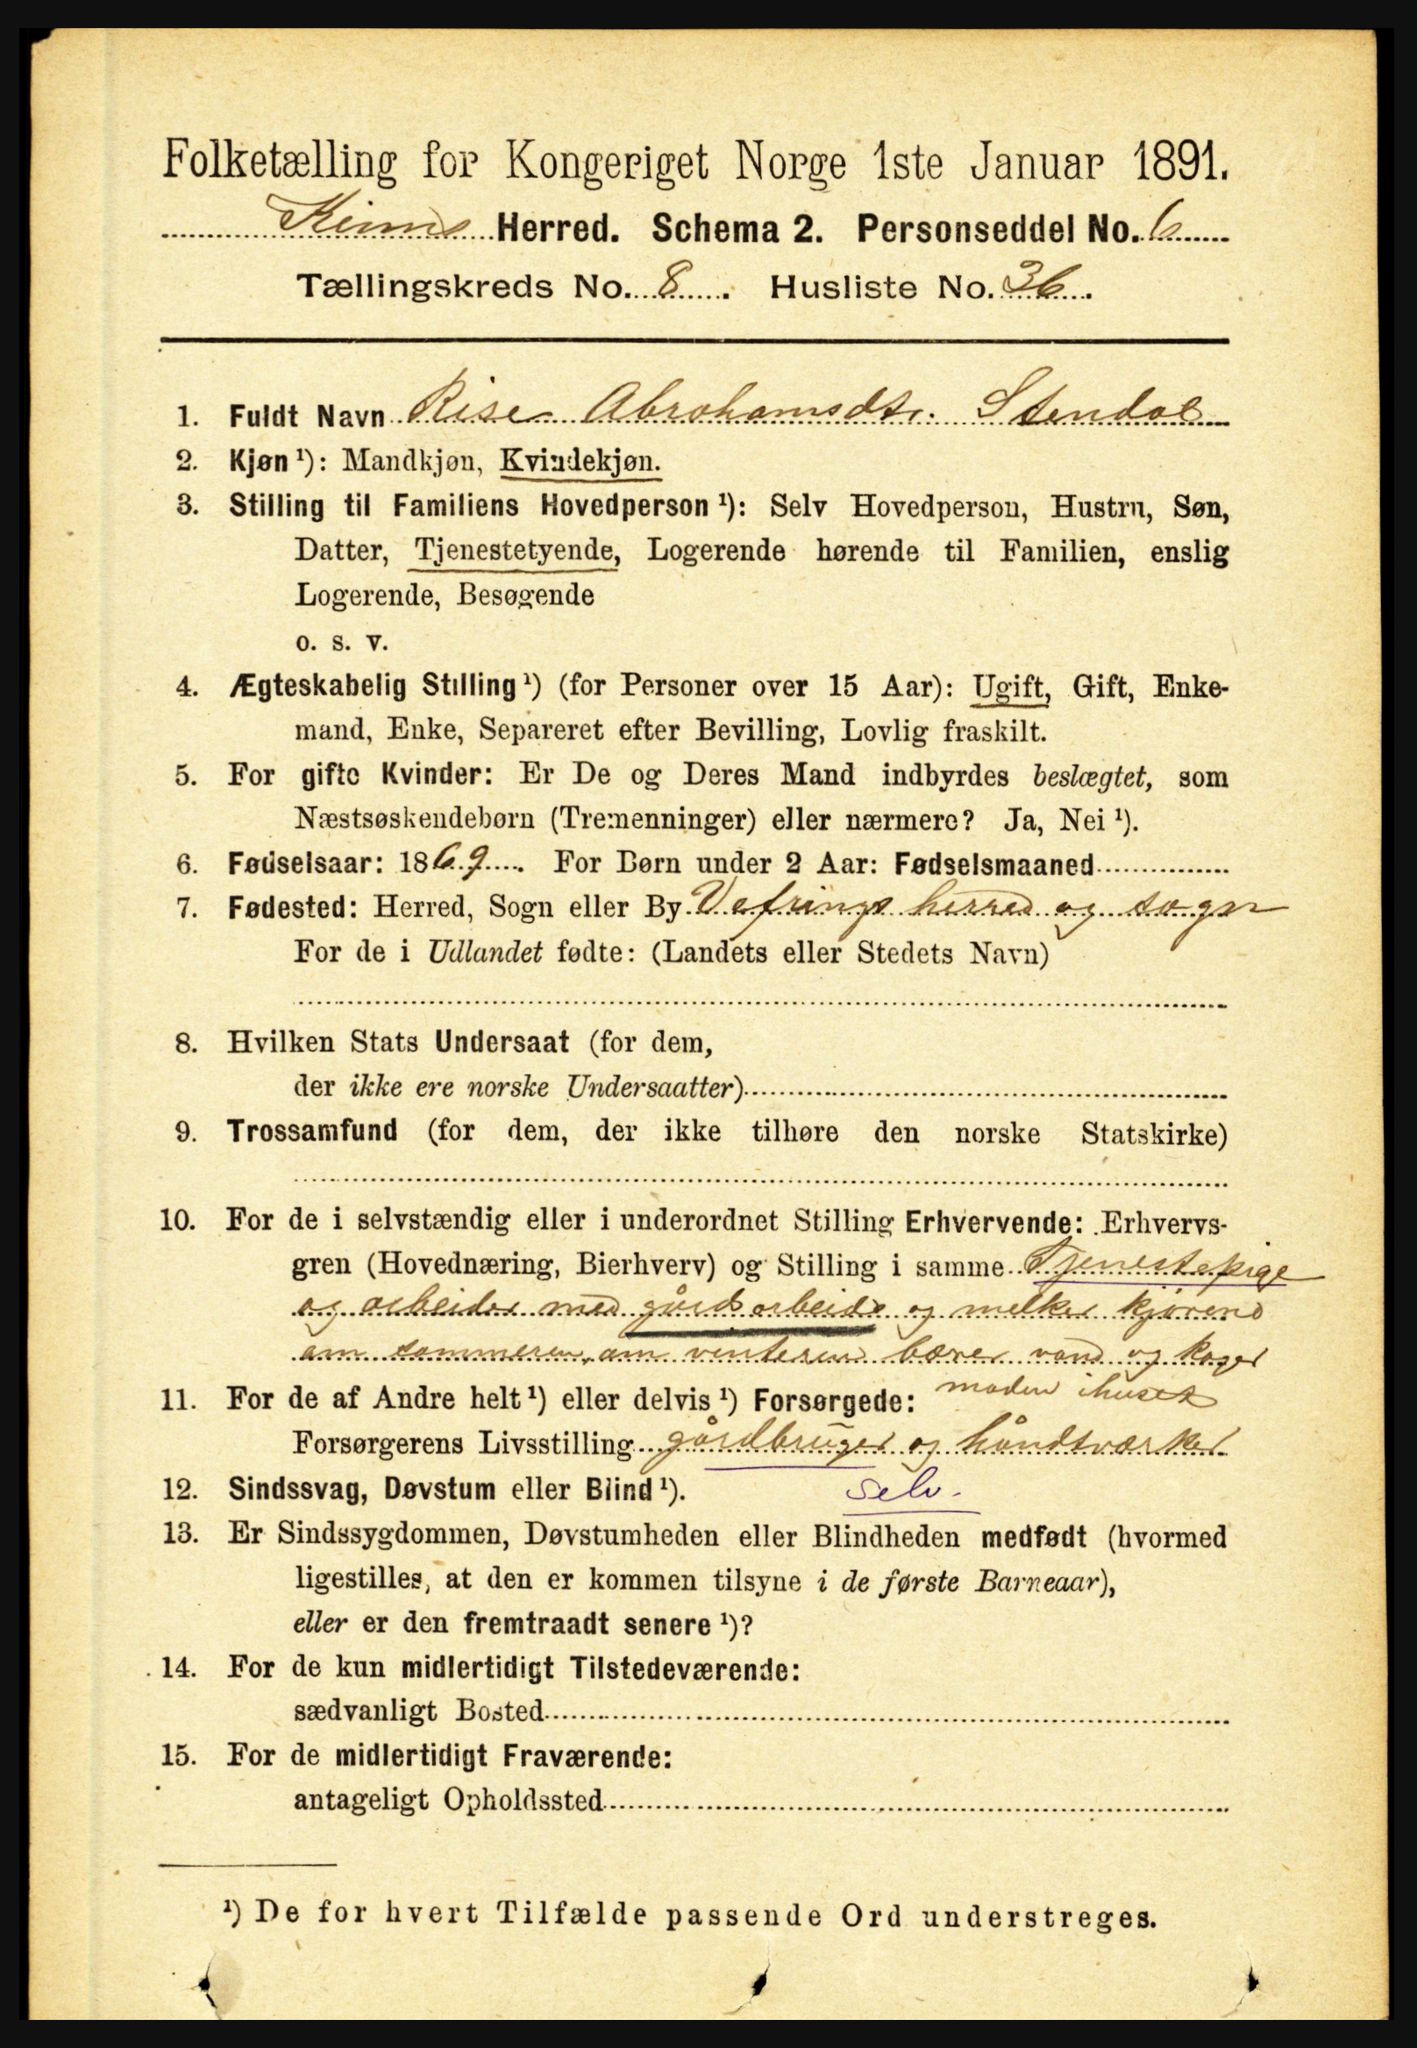 Folketælling for Kongeriget Norge 1ste Januar 1891.
Kinns Herred. Schema 2. Personseddel No. 6
Tællingskreds No. 8. Husliste No. 36.
1. Fuldt Navn Rise Abrahamsdtr. Stendal
2. Kjøn ¹): Mandkjøn, Kvindekjøn.
3. Stilling til Familiens Hovedperson ¹): Selv Hovedperson, Hustru, Søn,
Datter, Tjenestetyende, Logerende hørende til Familien, enslig
Logerende, Besøgende
o. s. v.
4. Ægteskabelig Stilling ¹) (for Personer over 15 Aar): Ugift, Gift, Enke-
mand, Enke, Separeret efter Bevilling, Lovlig fraskilt.
5. For gifte Kvinder: Er De og Deres Mand indbyrdes beslægtet, som
Næstsøskendebørn (Tremenninger) eller nærmere? Ja, Nei ¹).
6. Fødselsaar: 1869. For Børn under 2 Aar: Fødselsmaaned
7. Fødested: Herred, Sogn eller By Vefrings herred og sogn
For de i Udlandet fødte: (Landets eller Stedets Navn)
8. Hvilken Stats Undersaat (for dem,
der ikke ere norske Undersaatter)
9. Trossamfund (for dem, der ikke tilhøre den norske Statskirke)
10. For de i selvstændig eller i underordnet Stilling Erhvervende: Erhvervs-
gren (Hovednæring, Bierhverv) og Stilling i samme Tjenestepige
og arbeider med gårdsarbeide og melker kjørene
om sommeren, om vinteren bærer vand og koger
maden i huset
11. For de af Andre helt ¹) eller delvis ¹) Forsørgede:
Forsørgerens Livsstilling gårdbruger og håndtværker
12. Sindssvag, Døvstum eller Blind ¹). selv.
13. Er Sindssygdommen, Døvstumheden eller Blindheden medfødt (hvormed
ligestilles, at den er kommen tilsyne i de første Barneaar),
eller er den fremtraadt senere ¹)?
14. For de kun midlertidigt Tilstedeværende:
sædvanligt Bosted
15. For de midlertidigt Fraværende:
antageligt Opholdssted
¹) De for hvert Tilfælde passende Ord understreges.